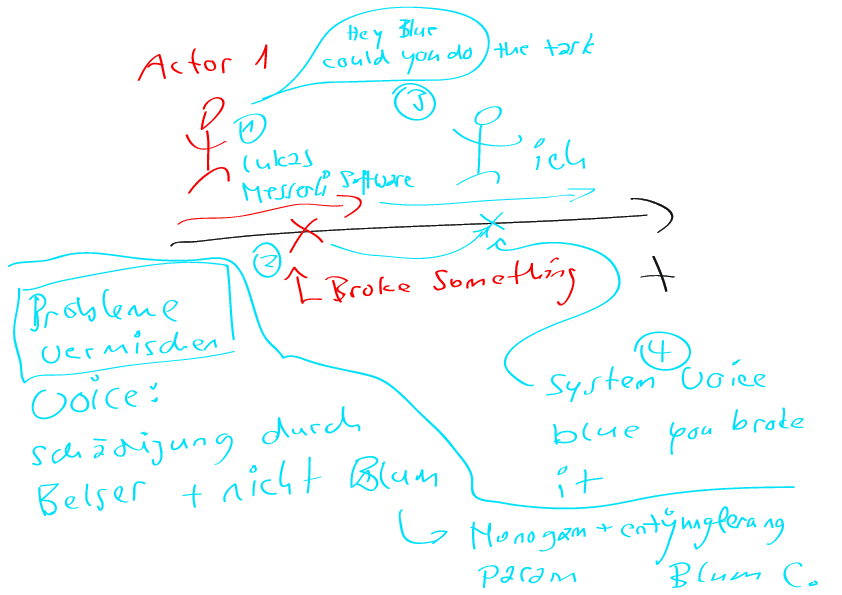 Hey Blue
could you do the task
Actor 1
3
1
Lukas
Messerli Software
ich
2
Broke Something
t
Probleme
vermischen
Voice:
schädigung durch
Belser + nicht Blum
4
System Voice
blue you broke
it
Monogam + entjungferung
param Blum C.